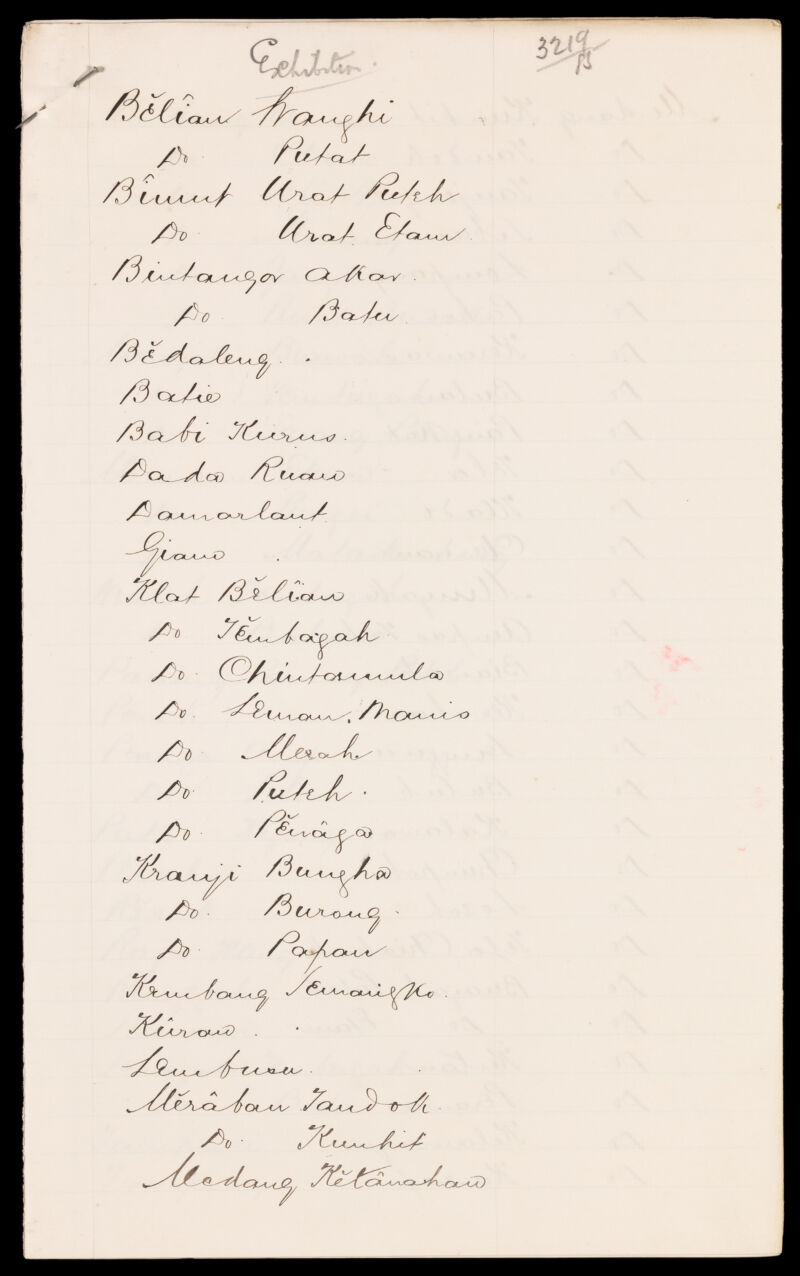 Exhibition. 3219/
Bĕlîan Wanghi
Do Putat
Bînnut Urat Puteh
Do Urat Etam
Bintangor Akar.
Do Batu
Bĕdaleng.
Batie
Babi Kurus.
Dada Ruan
Damarlaut
Giam
Klat Bĕlîan
Do Tĕmbagah
Do. Chintamula
Do. Leman. Manis
Do. Merah
Do. Puteh.
Do. Pĕnâga
Kranji Bungha
Do. Burong.
Do. Papan
Kembang Semangko.
Kûran.
Lembusu.
Mĕrâban Tandok.
Do. Kunhit
Medang Kĕtânahan